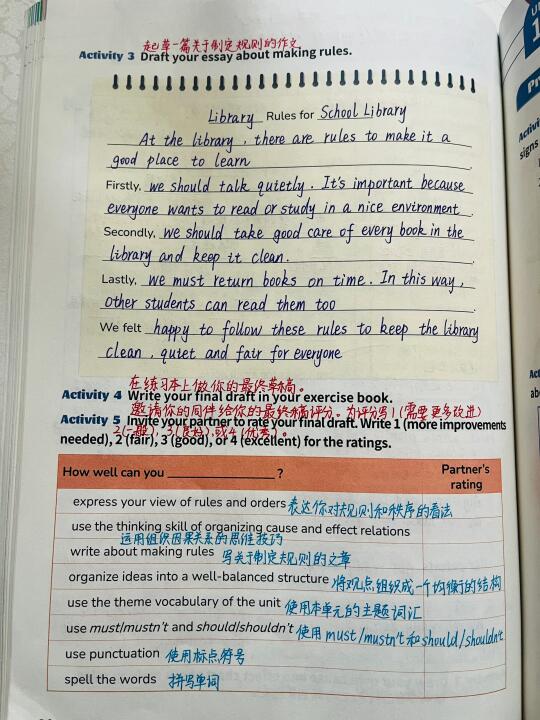 起草一篇关于制定规则的作文
Activity 3 Draft your essay about making rules.
Library Rules for School Library
At the library, there are rules to make it a
good place to learn.
Firstly, we should talk quietly. It's important because
everyone wants to read or study in a nice environment.
Secondly, we should take good care of every book in the
library and keep it clean.
Lastly, we must return books on time. In this way,
other students can read them too.
We felt happy to follow these rules to keep the library
clean, quiet and fair for everyone.
在练习本上做你的最终草稿。
Activity 4 Write your final draft in your exercise book.
邀请你的同伴给你的最终稿评分。为评分写1(需要更多改进)
Activity 5 Invite your partner to rate your final draft. Write 1 (more improvements
2(一般), 3(良好),或4(优秀)。
needed), 2 (fair), 3 (good), or 4 (excellent) for the ratings.
How well can you ____________ ? Partner's
rating
express your view of rules and orders 表达你对规则和秩序的看法
use the thinking skill of organizing cause and effect relations
运用组织因果关系的思维技巧
write about making rules 写关于制定规则的文章
organize ideas into a well-balanced structure 将观点组织成一个均衡的结构
use the theme vocabulary of the unit 使用本单元的主题词汇
use must/mustn't and should/shouldn't 使用must/mustn't和should/shouldn't
use punctuation 使用标点符号
spell the words 拼写单词
signs